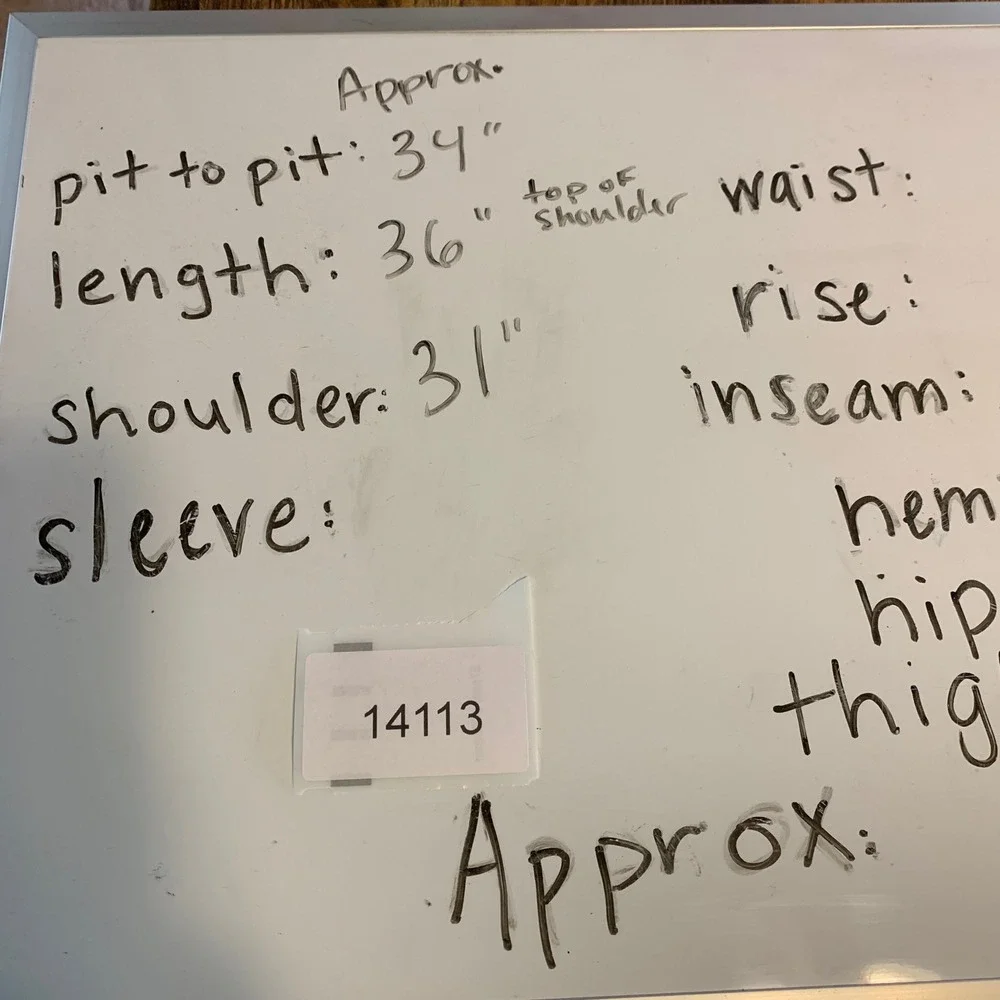 Approx.
pit to pit: 34"
length: 36" top of shoulder
shoulder: 31"
sleeve:
waist:
rise:
inseam:
hem
hip
thig
14113
Approx: